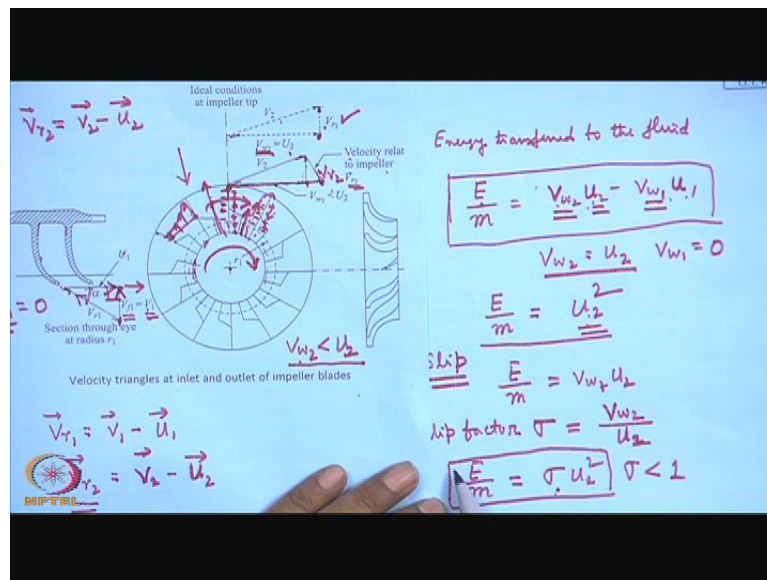 V⃗r₂ = V⃗₂ − U⃗₂
Ideal conditions
at impeller tip
V₂
Vr₂
Vw₂ = U₂
V₂
Velocity relat
to impeller
Vr₂
Vr₂
Vw₂ < U₂
r₁
U₁
α
Vr₁
Vf₁ = V₁
= 0
Section through eye
at radius r₁
Vw₂ < U₂
Velocity triangles at inlet and outlet of impeller blades
V⃗r₁ = V⃗₁ − U⃗₁
r₂ = V⃗₂ − U⃗₂
NPTEL
Energy transferred to the fluid
E/m = Vw₂ U₂ − Vw₁ U₁
Vw₂ = U₂ Vw₁ = 0
E/m = U₂²
Slip E/m = Vw₂ U₂
lip factor σ = Vw₂/U₂
E/m = σ U₂² σ < 1